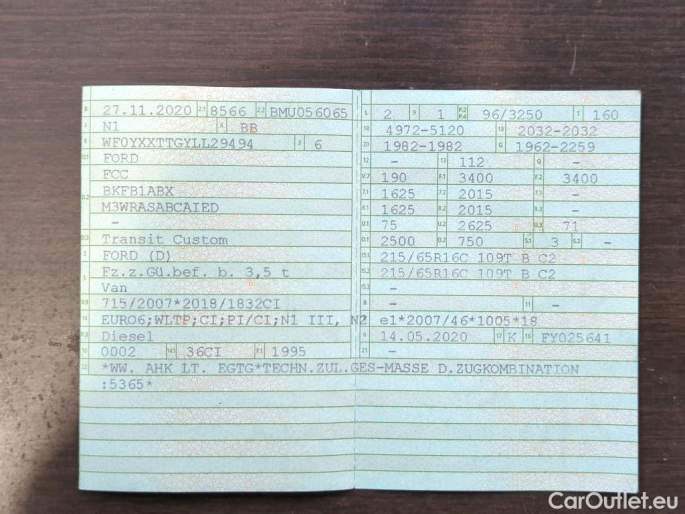 27.11.2020 8566 BMU056065
N1 BB
WF0YXXTTGYLL29494 6
FORD
FCC
BKFB1ABX
M3WRASABCAIED
-
Transit Custom
FORD (D)
Fz.z.Gü.bef. b. 3,5 t
Van
715/2007*2018/1832CI
EURO6;WLTP;CI;PI/CI;N1 III, N2
Diesel
0002 36CI 1995
*WW. AHK LT. EGTG*TECHN.ZUL.GES-MASSE D.ZUGKOMBINATION
:5365*
2 1 96/3250 160
4972-5120 2032-2032
1982-1982 1962-2259
- 112 -
190 3400 3400
1625 2015 -
1625 2015 -
75 2625 71
2500 750 3 -
215/65R16C 109T B C2
215/65R16C 109T B C2
-
- -
e1*2007/46*1005*18
14.05.2020 K FY025641
-
CarOutlet.eu